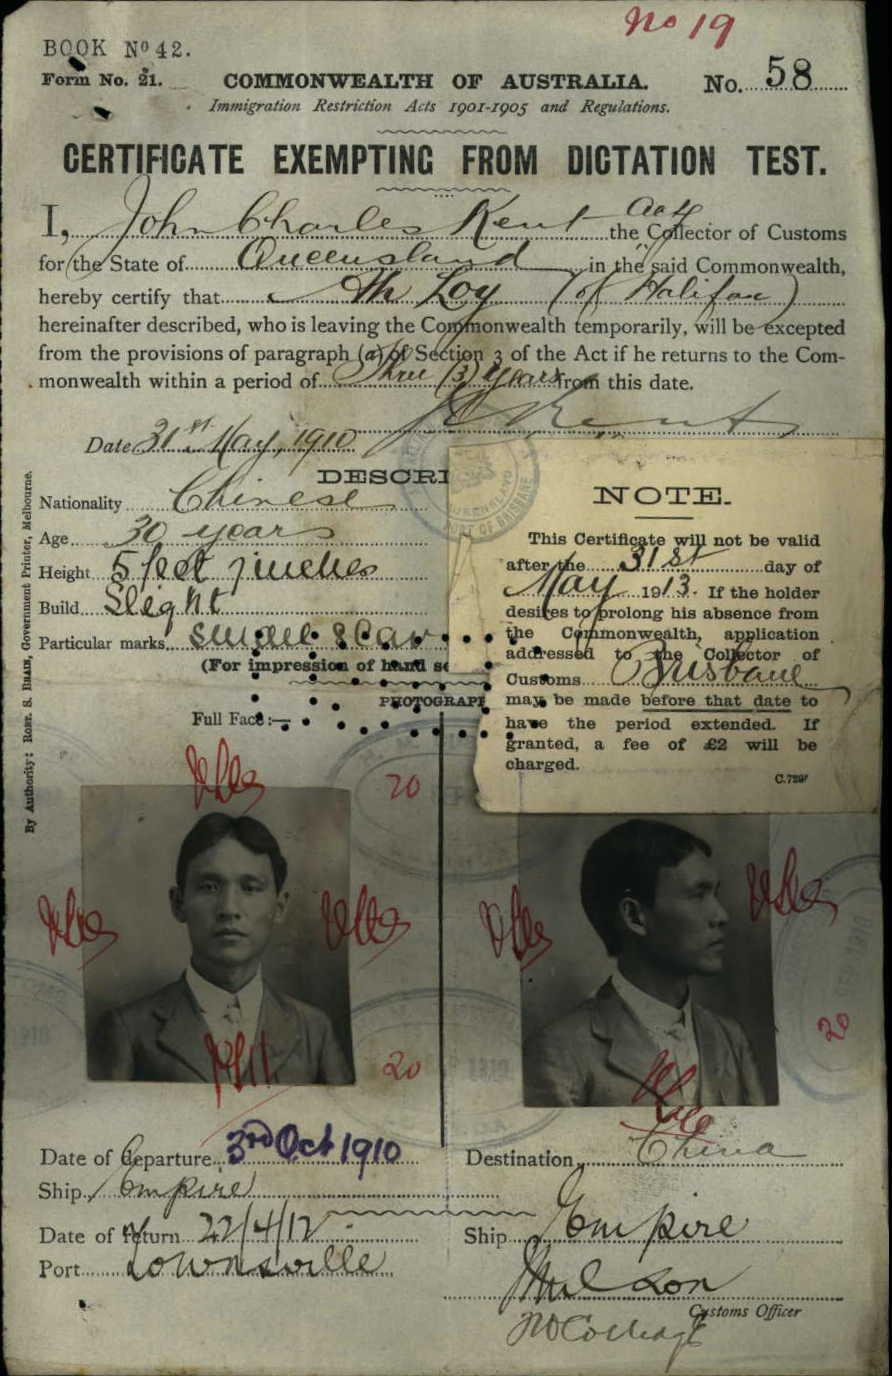 No 19
BOOK No 42.
Form No. 21.
COMMONWEALTH OF AUSTRALIA.
No. 58
Immigration Restriction Acts 1901-1905 and Regulations.
CERTIFICATE EXEMPTING FROM DICTATION TEST.
I, John Charles Kent Actg the Collector of Customs
for the State of Queensland in the said Commonwealth,
hereby certify that Ah Loy (of Halifax)
hereinafter described, who is leaving the Commonwealth temporarily, will be excepted
from the provisions of paragraph (a) of Section 3 of the Act if he returns to the Com-
monwealth within a period of Three (3) years from this date.
J C Kent
Date 31st May, 1910
DESCRI
Nationality Chinese
Age 30 years
Height 5 feet 7 inches
Build Slight
Particular marks small scar
(For impression of hand se
PHOTOGRAPH
Full Face:—
NOTE.
This Certificate will not be valid
after the 31st day of
May 1913. If the holder
desires to prolong his absence from
the Commonwealth, application
addressed to the Collector of
Customs Brisbane
may be made before that date to
have the period extended. If
granted, a fee of £2 will be
charged.
C.729
By Authority: ROBT. S. BRAIN, Government Printer, Melbourne.
PORT OF BRISBANE
20
20
20
Date of departure 3rd Oct 1910
Destination China
Ship Empire
Date of return 22/4/12
Ship Empire
Port Townsville
Customs Officer